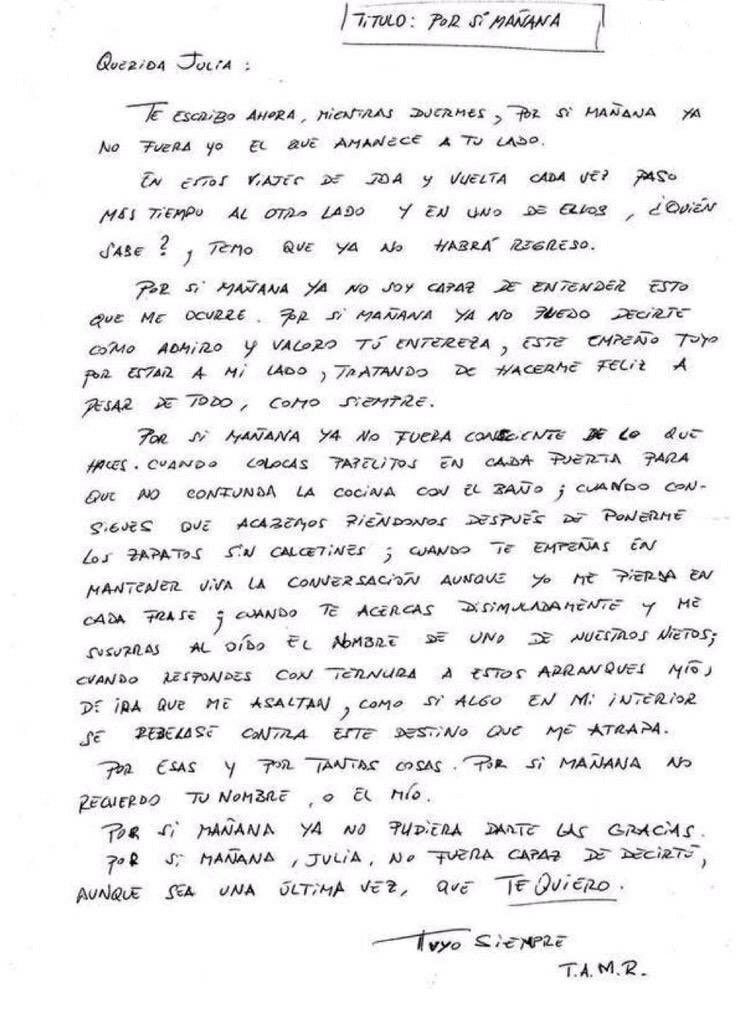 TITULO: POR SI MAÑANA
QUERIDA JULIA :
TE ESCRIBO AHORA, MIENTRAS DUERMES, POR SI MAÑANA YA
NO FUERA YO EL QUE AMANECE A TU LADO.
EN ESTOS VIAJES DE IDA Y VUELTA CADA VEZ PASO
MÁS TIEMPO AL OTRO LADO Y EN UNO DE ELLOS, ¿QUIÉN
SABE?, TEMO QUE YA NO HABRÁ REGRESO.
POR SI MAÑANA YA NO SOY CAPAZ DE ENTENDER ESTO
QUE ME OCURRE. POR SI MAÑANA YA NO PUEDO DECIRTE
COMO ADMIRO Y VALORO TÚ ENTEREZA, ESTE EMPEÑO TUYO
POR ESTAR A MI LADO, TRATANDO DE HACERME FELIZ A
PESAR DE TODO, COMO SIEMPRE.
POR SI MAÑANA YA NO FUERA CONSCIENTE DE LO QUE
HACES. CUANDO COLOCAS PAPELITOS EN CADA PUERTA PARA
QUE NO CONFUNDA LA COCINA CON EL BAÑO; CUANDO CON-
SIGUES QUE ACABEMOS RIÉNDONOS DESPUÉS DE PONERME
LOS ZAPATOS SIN CALCETINES; CUANDO TE EMPEÑAS EN
MANTENER VIVA LA CONVERSACIÓN AUNQUE YO ME PIERDA EN
CADA FRASE; CUANDO TE ACERCAS DISIMULADAMENTE Y ME
SUSURRAS AL OÍDO EL NOMBRE DE UNO DE NUESTROS NIETOS;
CUANDO RESPONDES CON TERNURA A ESTOS ARRANQUES MÍOS
DE IRA QUE ME ASALTAN, COMO SI ALGO EN MI INTERIOR
SE REBELASE CONTRA ESTE DESTINO QUE ME ATRAPA.
POR ESAS Y POR TANTAS COSAS. POR SI MAÑANA NO
RECUERDO TU NOMBRE, O EL MÍO.
POR SI MAÑANA YA NO PUDIERA DARTE LAS GRACIAS.
POR SI MAÑANA, JULIA, NO FUERA CAPAZ DE DECIRTE,
AUNQUE SEA UNA ÚLTIMA VEZ, QUE TE QUIERO.
TUYO SIEMPRE
T.A.M.R.